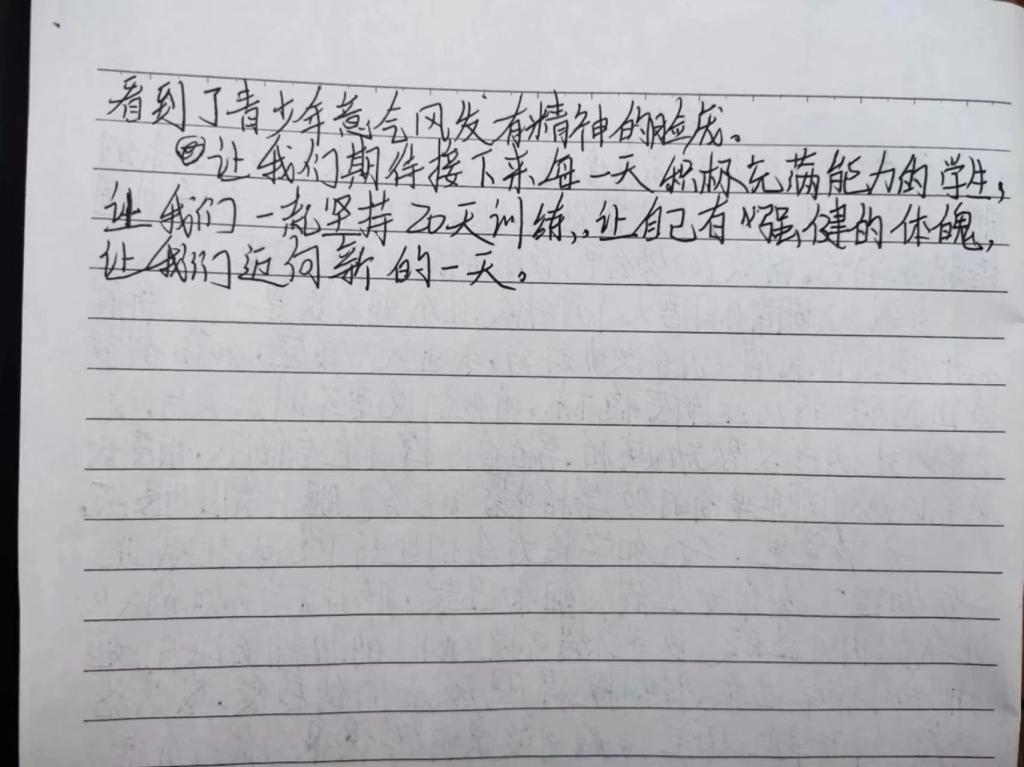 看到了青少年意气风发有精神的脸庞。
让我们期待接下来每一天积极充满能力的学生,
让我们一起坚持20天训练,,让自己有"强健的体魄,
让我们迈向新的一天。